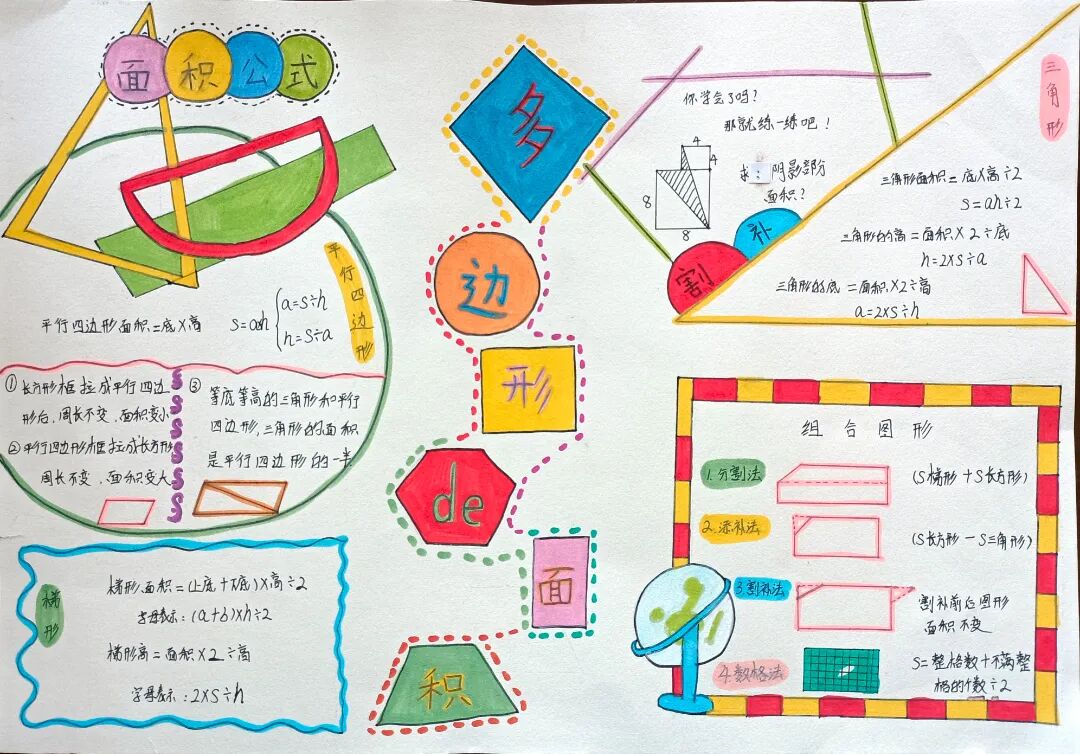 面积公式
平行四边形
平行四边形面积=底×高
S=ah
a=S÷h
h=S÷a
①长方形框拉成平行四边
形后,周长不变、面积变小
②平行四边形框拉成长方形
周长不变、面积变大
S
S
S
S
S
S
③
等底等高的三角形和平行
四边形,三角形的面积
是平行四边形的一半
梯形
梯形面积=(上底+下底)×高÷2
字母表示:(a+b)×h÷2
梯形高=面积×2÷高
字母表示:2×S÷h
多
边
形
de
面
积
你学会了吗?
那就练一练吧!
求:阴影部分
面积?
4
4
8
8
割
补
三角形
三角形面积=底×高÷2
S=ah÷2
三角形的高=面积×2÷底
h=2×S÷a
三角形的底=面积×2÷高
a=2×S÷h
组合图形
1.分割法
(S梯形+S长方形)
2.添补法
(S长方形-S三角形)
3.割补法
割补前后图形
面积不变
4.数格法
S=整格数+不满整
格的个数÷2